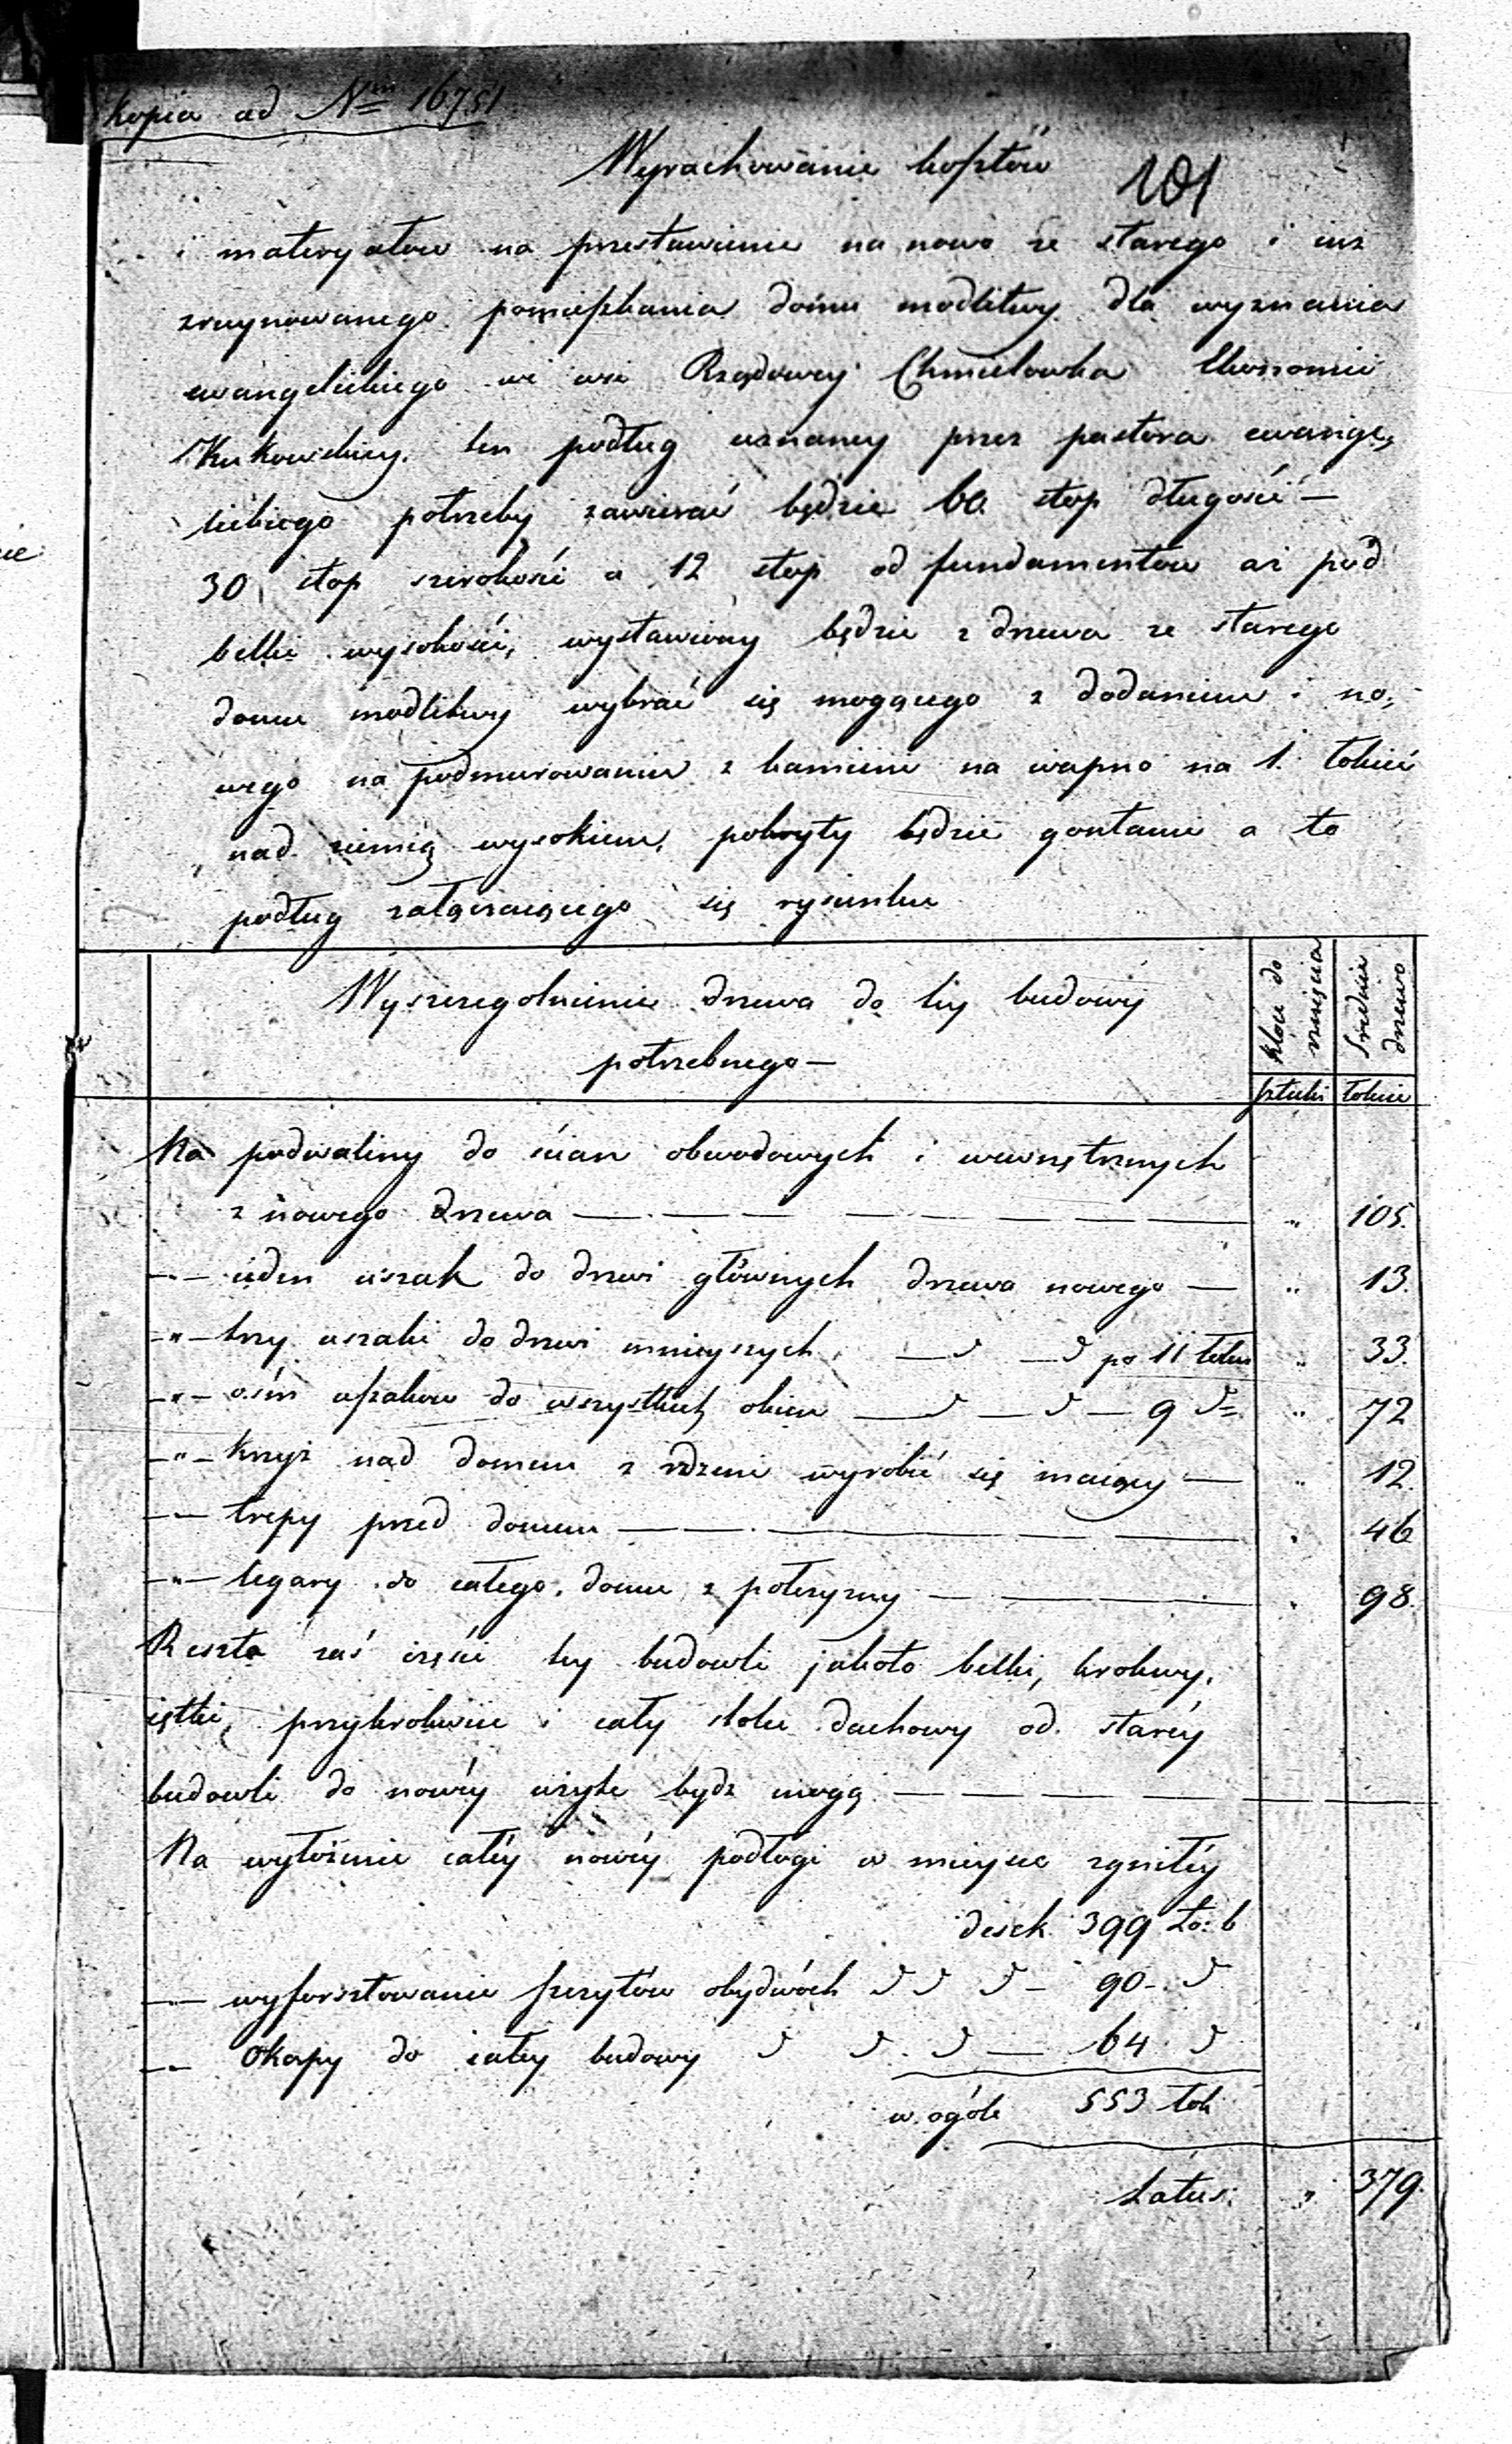 Kopia ad Nrm 16751
Wyrachowanie kosztów 101
i materyałow na przestawienie na nowo ze starego i iuz
zruynowanego pomieszkania domu modlitwy dla wyznania
ewangelickiego we wsi Rządowey Chmielowka Ekonomii
Kukowskiey. ten podług uznaney przez pastora ewange,
lickiego potrzeby zawierać będzie 60 stop długości —
30 stop szerokości a 12 stop od fundamentow aż pod
belki wysokości, wystawiony będzie z drzewa ze starego
domu modlitwy wybrać się mogącego z dodaniem i no,
wego na podmurowaniu z kamieni na wapno na 1. łokieć
nad ziemią wysokiem, pokryty będzie gontami a to
podług załączaiącego się rysunku
Wyszczegolnienie drzewa do tey budowy kloce do rznięcia Srednie drzewo
potrzebnego —
sztuki łokcie
Na podwaliny do ścian obwodowych i wewnętrznych
z nowego drzewa — — — — — — — " 105.
— ieden uszak do drzwi głównych drzewa nowego — " 13.
-"- trzy uszaki do drzwi mnieyszych —d —d po 11 łokci " 33.
-"- ośm uszakow do wszystkich okien —d —d — 9 d= " 72
-"- Krzyż nad domem z rdzeni wyrobić się maiący — " 12.
— trepy przed domem — — — — — " 46
-"- legary do całego domu z połczyzny — — — " 98.
Reszta zaś części tey budowli jakoto belki, krokwy,
iętki, przykrokwie i cały stolec dachowy od starey
budowli do nowéy użyte bydź mogą — — — — — —
Na wyłożenie całéy nowéy podłogi w mieysce zgniłéy
desek 399 Ło: b
— wyforsztowanie szczytów obydwóch d d d — 90 — d
— Okapy do całey budowy d d. d — 64. d
w ogóle 553 łok
Latus: " 379.